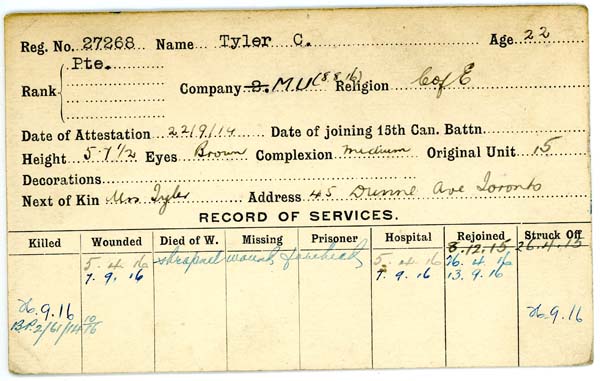 Reg. No. 27268 Name Tyler C. Age 22
Rank Pte. Company 2. M.U (8.8.16) Religion C of E
Date of Attestation 22/9/14 Date of joining 15th Can. Battn.
Height 5-7 1/2 Eyes Brown Complexion Medium Original Unit 15
Decorations
Next of Kin Mrs Tyler Address 45 Dunne Ave Toronto
RECORD OF SERVICES.
Killed Wounded Died of W. Missing Prisoner Hospital Rejoined Struck Off
8.12.15 26.4.15
5.4.16 shrapnel wound forehead 5.4.16 26.4.16
7.9.16 7.9.16 13.9.16
26.9.16 26.9.16
B.P. 2/61/14 10/16